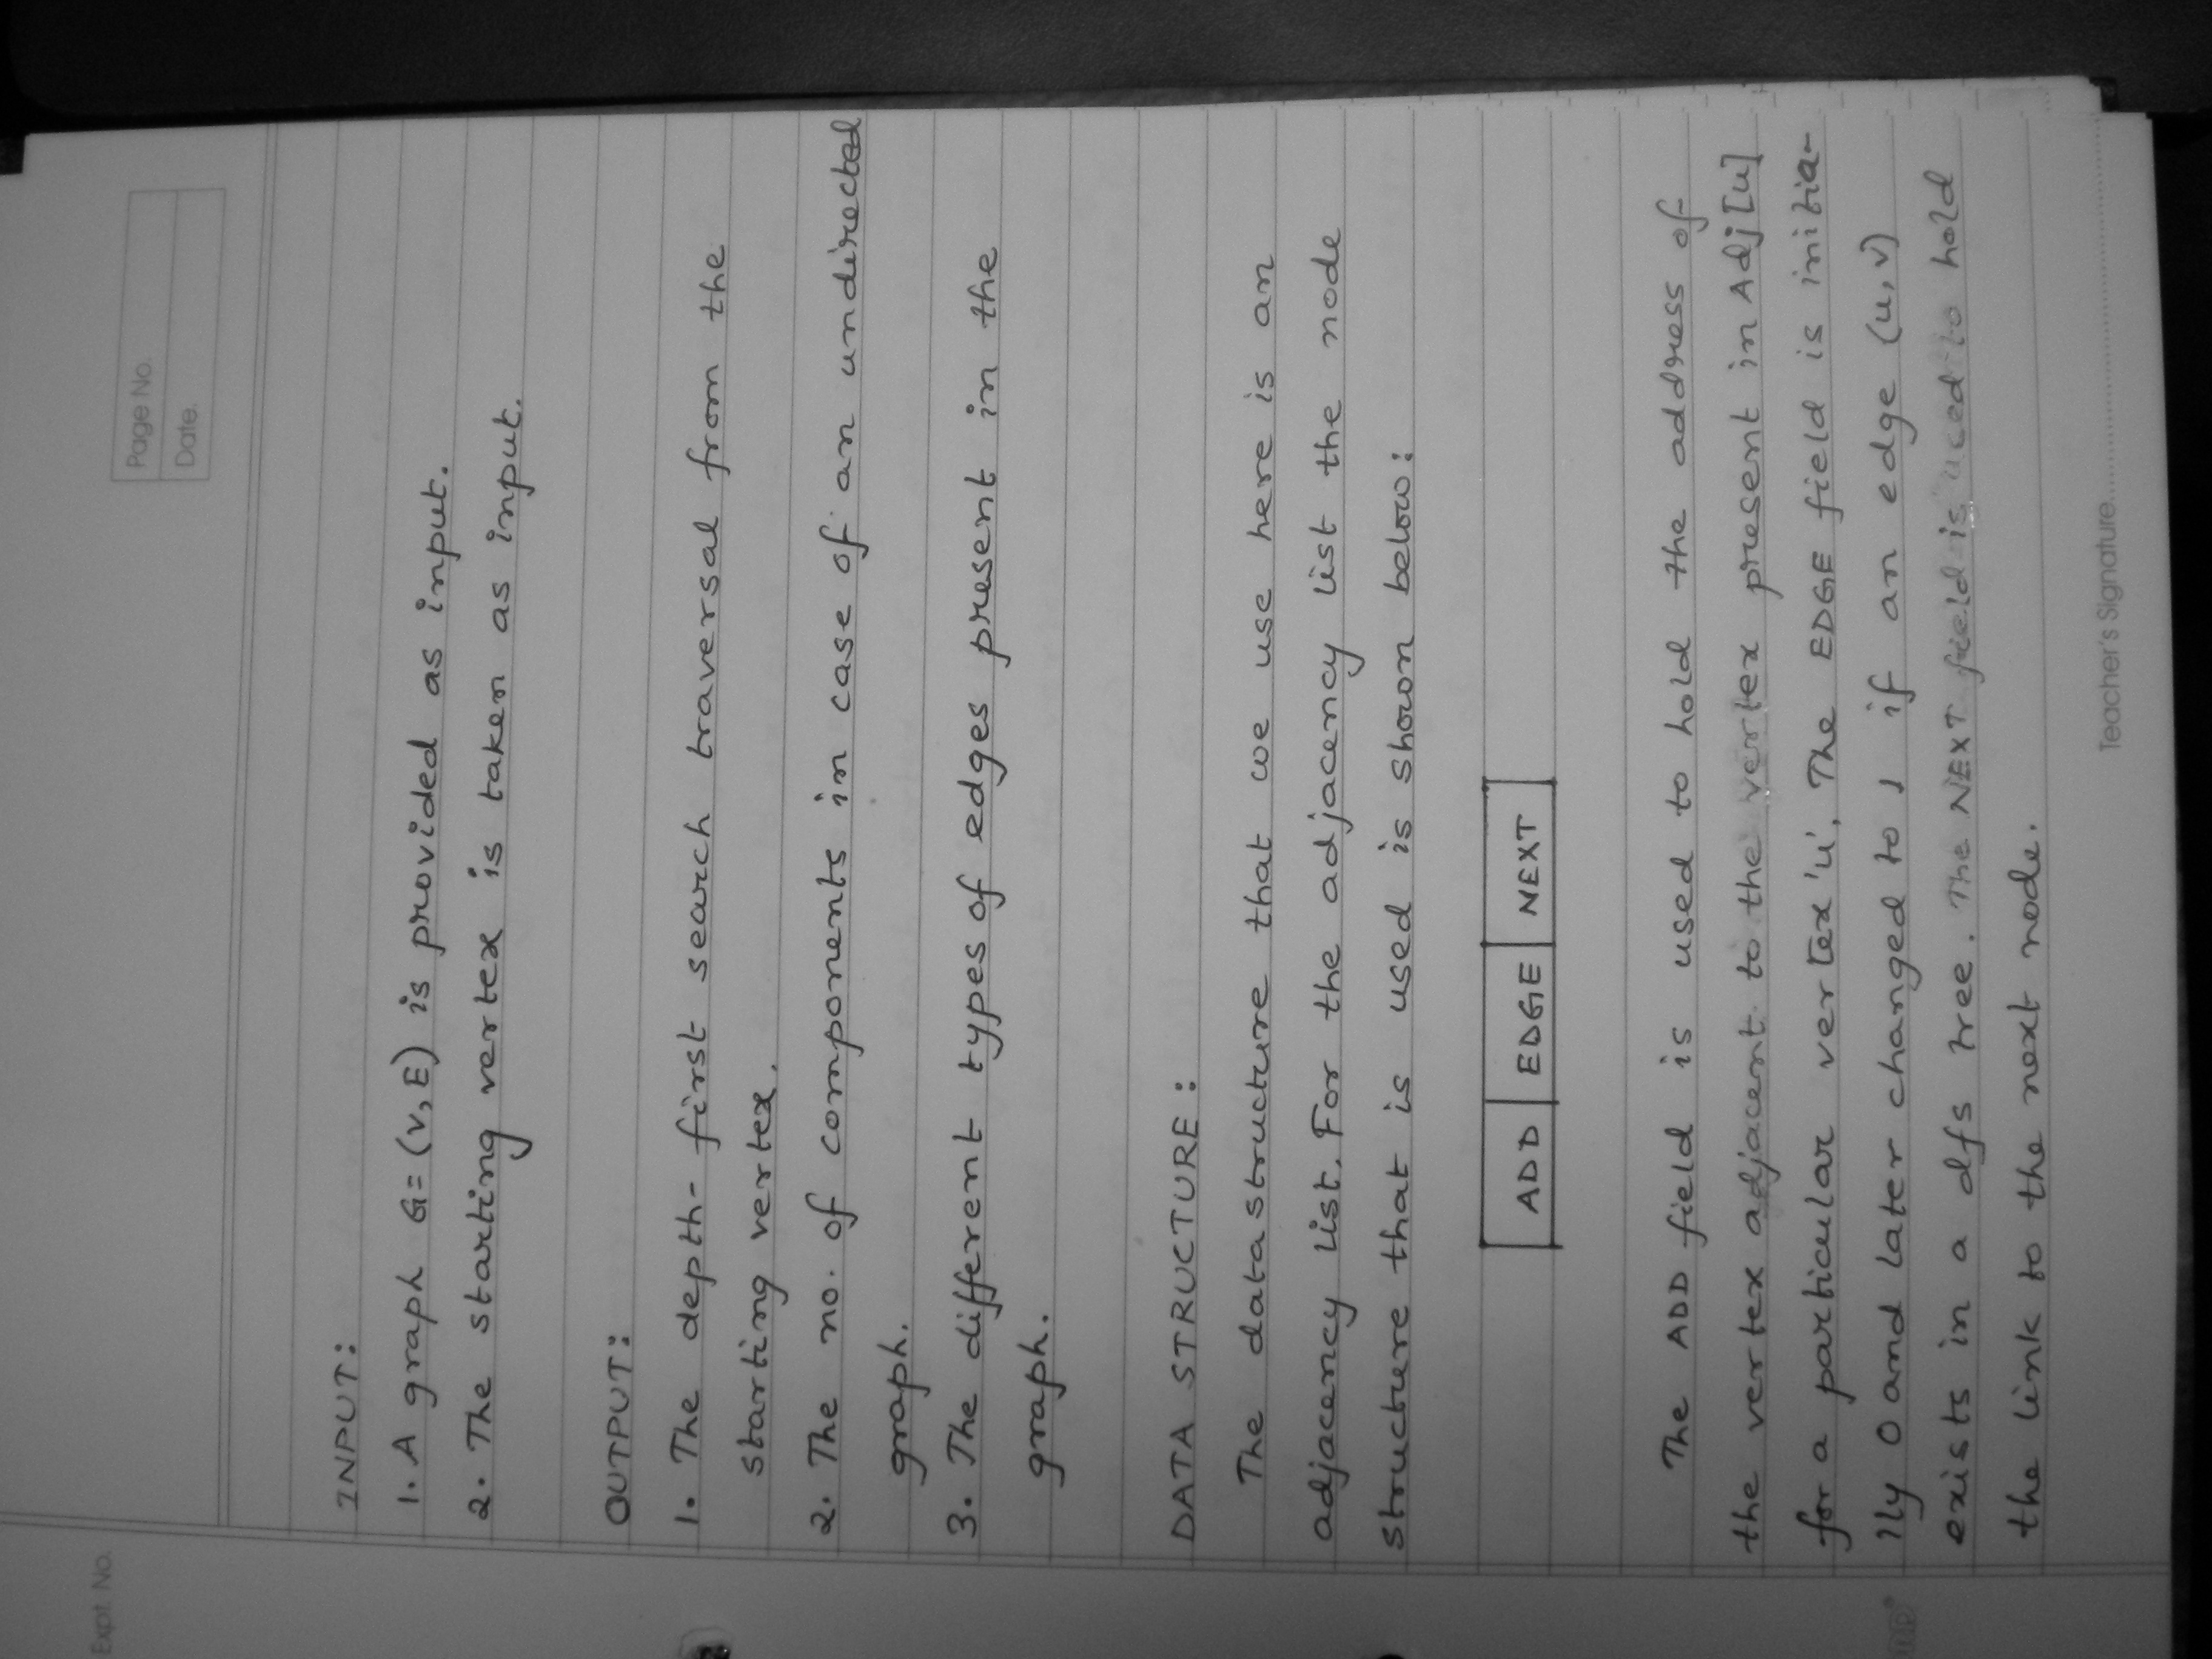 Expt. No.
Page No.
Date.
INPUT:
1. A graph G=(V,E) is provided as input.
2. The starting vertex is taken as input.
OUTPUT:
1. The depth-first search traversal from the
starting vertex.
2. The no. of components in case of an undirected
graph.
3. The different types of edges present in the
graph.
DATA STRUCTURE:
The data structure that we use here is an
adjacency list. For the adjacency list the node
structure that is used is shown below:
ADD EDGE NEXT
The ADD field is used to hold the address of
the vertex adjacent to the vertex present in Adj[u]
for a particular vertex 'u'. The EDGE field is initia-
lly 0 and later changed to 1 if an edge (u,v)
exists in a dfs tree. The NEXT field is used to hold
the link to the next node.
Teacher's Signature